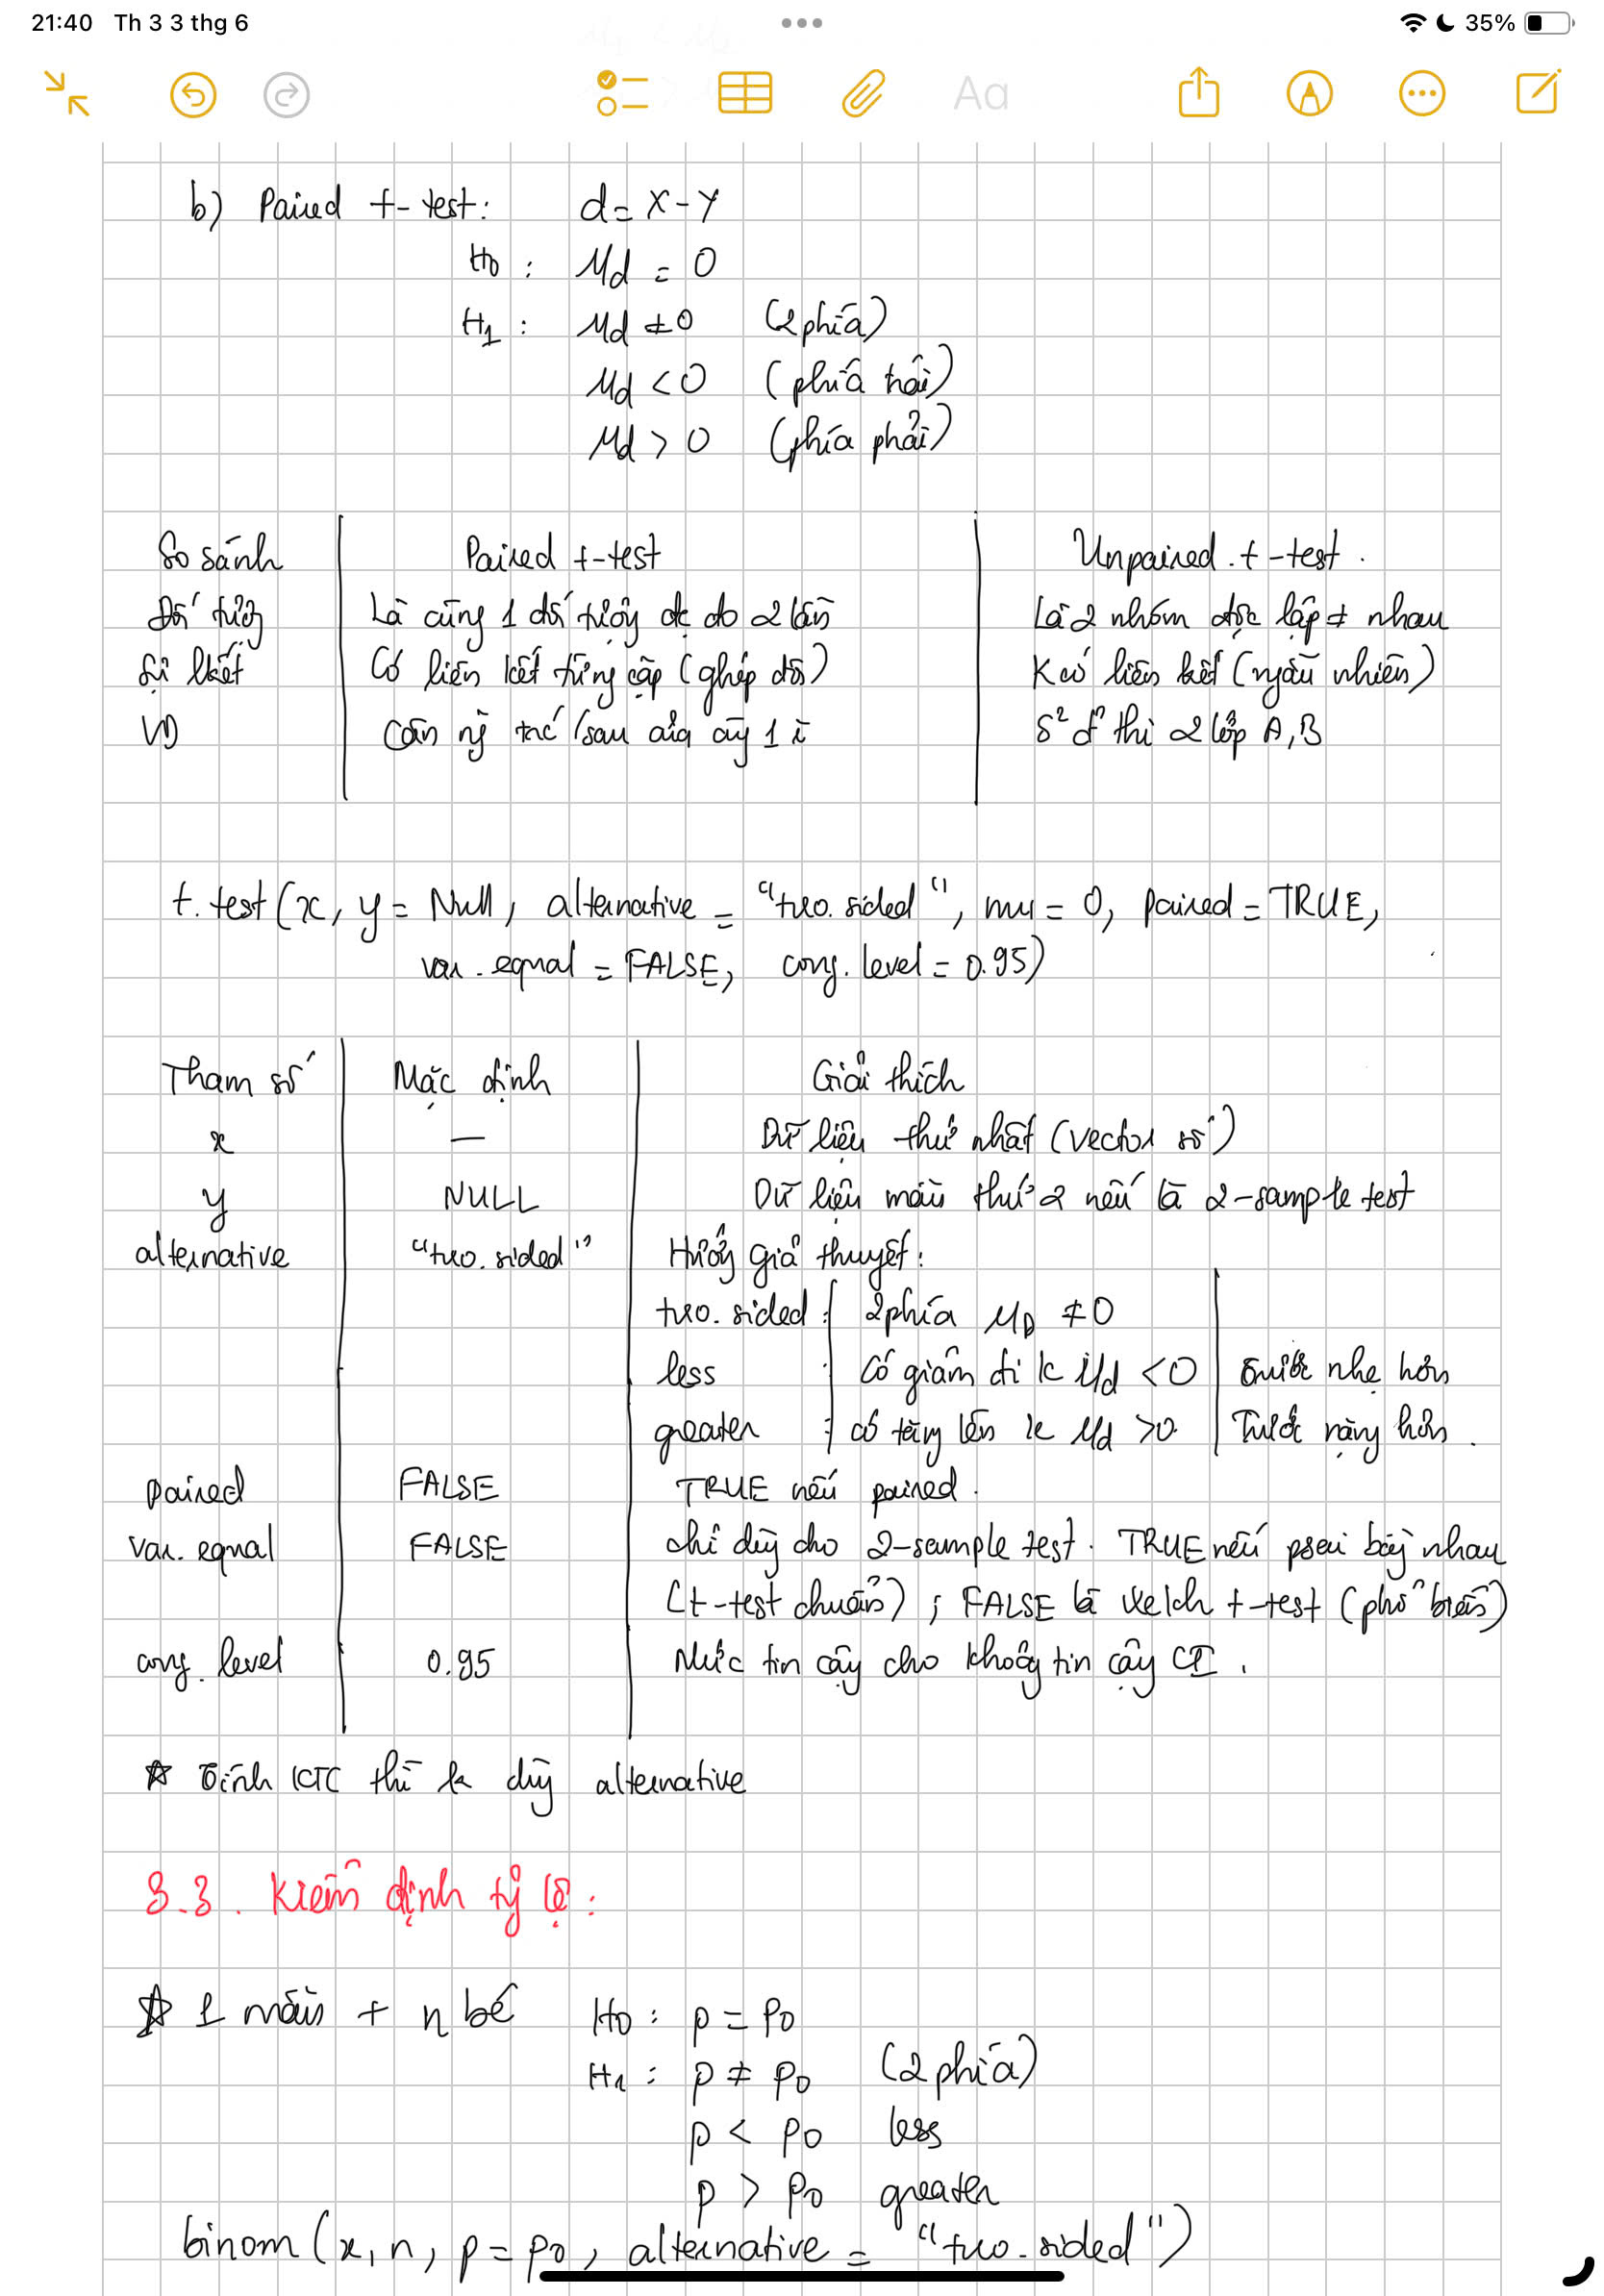 21:40 Th 3 3 thg 6
35%
Aa
b) Paired t-test: d = X - Y
H0 : μd = 0
H1 : μd ≠ 0 (2 phía)
μd < 0 (phía trái)
μd > 0 (phía phải)
So sánh | Paired t-test | Unpaired t-test.
Đối tượng | Là cùng 1 đối tượng đc đo 2 lần | Là 2 nhóm độc lập ≠ nhau
Sự lkết | Có liên kết từng cặp (ghép đôi) | K có liên kết (ngẫu nhiên)
VD | Cân nặng trc/sau của cùng 1 | S² đ' thi 2 lớp A, B
t.test(x, y = Null, alternative = "two.sided", mu = 0, paired = TRUE,
var.equal = FALSE, conf.level = 0.95)
Tham số | Mặc định | Giải thích
x | — | Dữ liệu thứ nhất (vector số)
y | NULL | Dữ liệu mẫu thứ 2 nếu là 2-sample test
alternative | "two.sided" | Hướng giả thuyết:
two.sided : 2 phía μD ≠ 0
less : Có giảm đi k μd < 0 | nhẹ hơn
greater : có tăng lên k μd > 0 | Trước nặng hơn.
paired | FALSE | TRUE nếu paired.
var.equal | FALSE | chỉ dùng cho 2-sample test. TRUE nếu psai bằng nhau
(t-test chuẩn); FALSE là Welch t-test (phổ biến)
conf.level | 0.95 | Mức tin cậy cho khoảng tin cậy CI.
☆ Tính KTC thì k dùng alternative
3.3. Kiểm định tỷ lệ:
☆ 1 mẫu + n bé H0 : p = p0
H1 : p ≠ p0 (2 phía)
p < p0 less
p > p0 greater
binom(x, n, p = p0, alternative = "two.sided")